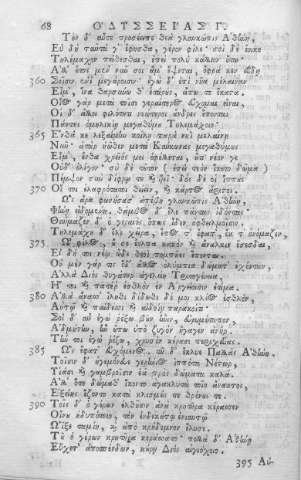 68 ΟΔΥΣΣΕΙΑΣ Γ.
Τὸν δ' αὖτε προσέειπε θεὰ γλαυκῶπις Ἀθήνη,
Εὖ δὴ ταῦτά γ' ἔφησθα, γέρον φίλε· σοὶ δὲ ἔοικε
Τηλέμαχον πείθεσθαι, ἐπεὶ πολὺ κάλλιον οὕτω.
Ἀλλ' οὗτος μὲν νῦν σοι ἅμ' ἕψεται, ὄφρα κεν εὕδῃ
360 Σοῖσιν ἐνὶ μεγάροισιν· ἐγὼ δ' ἐπὶ νῆα μέλαιναν
Εἶμ', ἵνα θαρσύνω θ' ἑτάρους, εἴπω τε ἕκαστα.
Οἶος γὰρ μετὰ τοῖσι γεραίτερος εὔχομαι εἶναι,
Οἱ δ' ἄλλοι φιλότητι νεώτεροι ἄνδρες ἕπονται
Πάντες ὁμηλικίη μεγαθύμου Τηλεμάχοιο.
365 Ἔνθα κε λεξαίμην κοίλῃ παρὰ νηὶ μελαίνῃ
Νῦν· ἀτὰρ ἠῶθεν μετὰ Καύκωνας μεγαθύμους
Εἶμ', ἔνθα χρεῖός μοι ὀφέλλεται, οὔ τι νέον γε
Οὐδ' ὀλίγον· σὺ δὲ τοῦτον (ἐπεὶ τεὸν ἵκετο δῶμα)
Πέμψον σὺν δίφρῳ τε καὶ υἱέϊ· δὸς δέ οἱ ἵππους
370 Οἵ τοι ἐλαφρότατοι θείειν, καὶ κάρτος ἄριστοι.
Ὣς ἄρα φωνήσασ' ἀπέβη γλαυκῶπις Ἀθήνη,
Φήνῃ εἰδομένη, θάμβος δ' ἕλε πάντας ἰδόντας·
Θαύμαζεν δ' ὁ γεραιός, ὅπως ἴδεν ὀφθαλμοῖσι·
Τηλεμάχου δ' ἕλε χεῖρα, ἔπος τ' ἔφατ', ἔκ τ' ὀνόμαζεν,
375 Ὦ φίλος, οὔ σε ἔολπα κακὸν καὶ ἄναλκιν ἔσεσθαι,
Εἰ δή τοι νέῳ ὧδε θεοὶ πομπῆες ἕπονται.
Οὐ μὲν γάρ τις ὅδ' ἄλλος ὀλύμπια δώματ' ἐχόντων,
Ἀλλὰ Διὸς θυγάτηρ ἀγελείη Τριτογένεια,
Ἥ τοι καὶ πατέρ' ἐσθλὸν ἐν Ἀργείοισιν ἐτίμα.
380 Ἀλλὰ ἄνασσ' ἵληθι δίδωθι δέ μοι κλέος ἐσθλὸν,
Αὐτῷ καὶ παίδεσσι καὶ αἰδοίῃ παρακοίτι·
Σοὶ δ' αὖ ἐγὼ ῥέξω βοῦν ἦνιν, εὐρυμέτωπον,
Ἀδμήτην, ἣν οὔπω ὑπὸ ζυγὸν ἤγαγεν ἀνήρ·
Τήν τοι ἐγὼ ῥέξω, χρυσὸν κέρασιν περιχεύας.
385 Ὣς ἔφατ' εὐχόμενος, τοῦ δ' ἔκλυε Παλλὰς Ἀθήνη.
Τοῖσιν δ' ἡγεμόνευε γερήνιος ἱππότα Νέστωρ,
Υἱάσι καὶ γαμβροῖσιν ἑὰ πρὸς δώματα καλά.
Ἀλλ' ὅτε δώμαθ' ἵκοντο ἀγακλυτὰ τοῖο ἄνακτος,
Ἑξείης ἕζοντο κατὰ κλισμούς τε θρόνους τε.
390 Τοῖς δ' ὁ γέρων ἐλθοῦσιν ἀνὰ κρητῆρα κέρασσεν
Οἴνου ἡδυπότοιο, τὸν ἑνδεκάτῳ ἐνιαυτῷ
Ὤϊξε ταμίη, καὶ ἀπὸ κρήδεμνον ἔλυσε.
Τοῦ ὁ γέρων κρητῆρα κεράσσατο· πολλὰ δ' Ἀθήνῃ
Εὔχετ' ἀποσπένδων, κούρῃ Διὸς αἰγιόχοιο.
395 Αὐ-